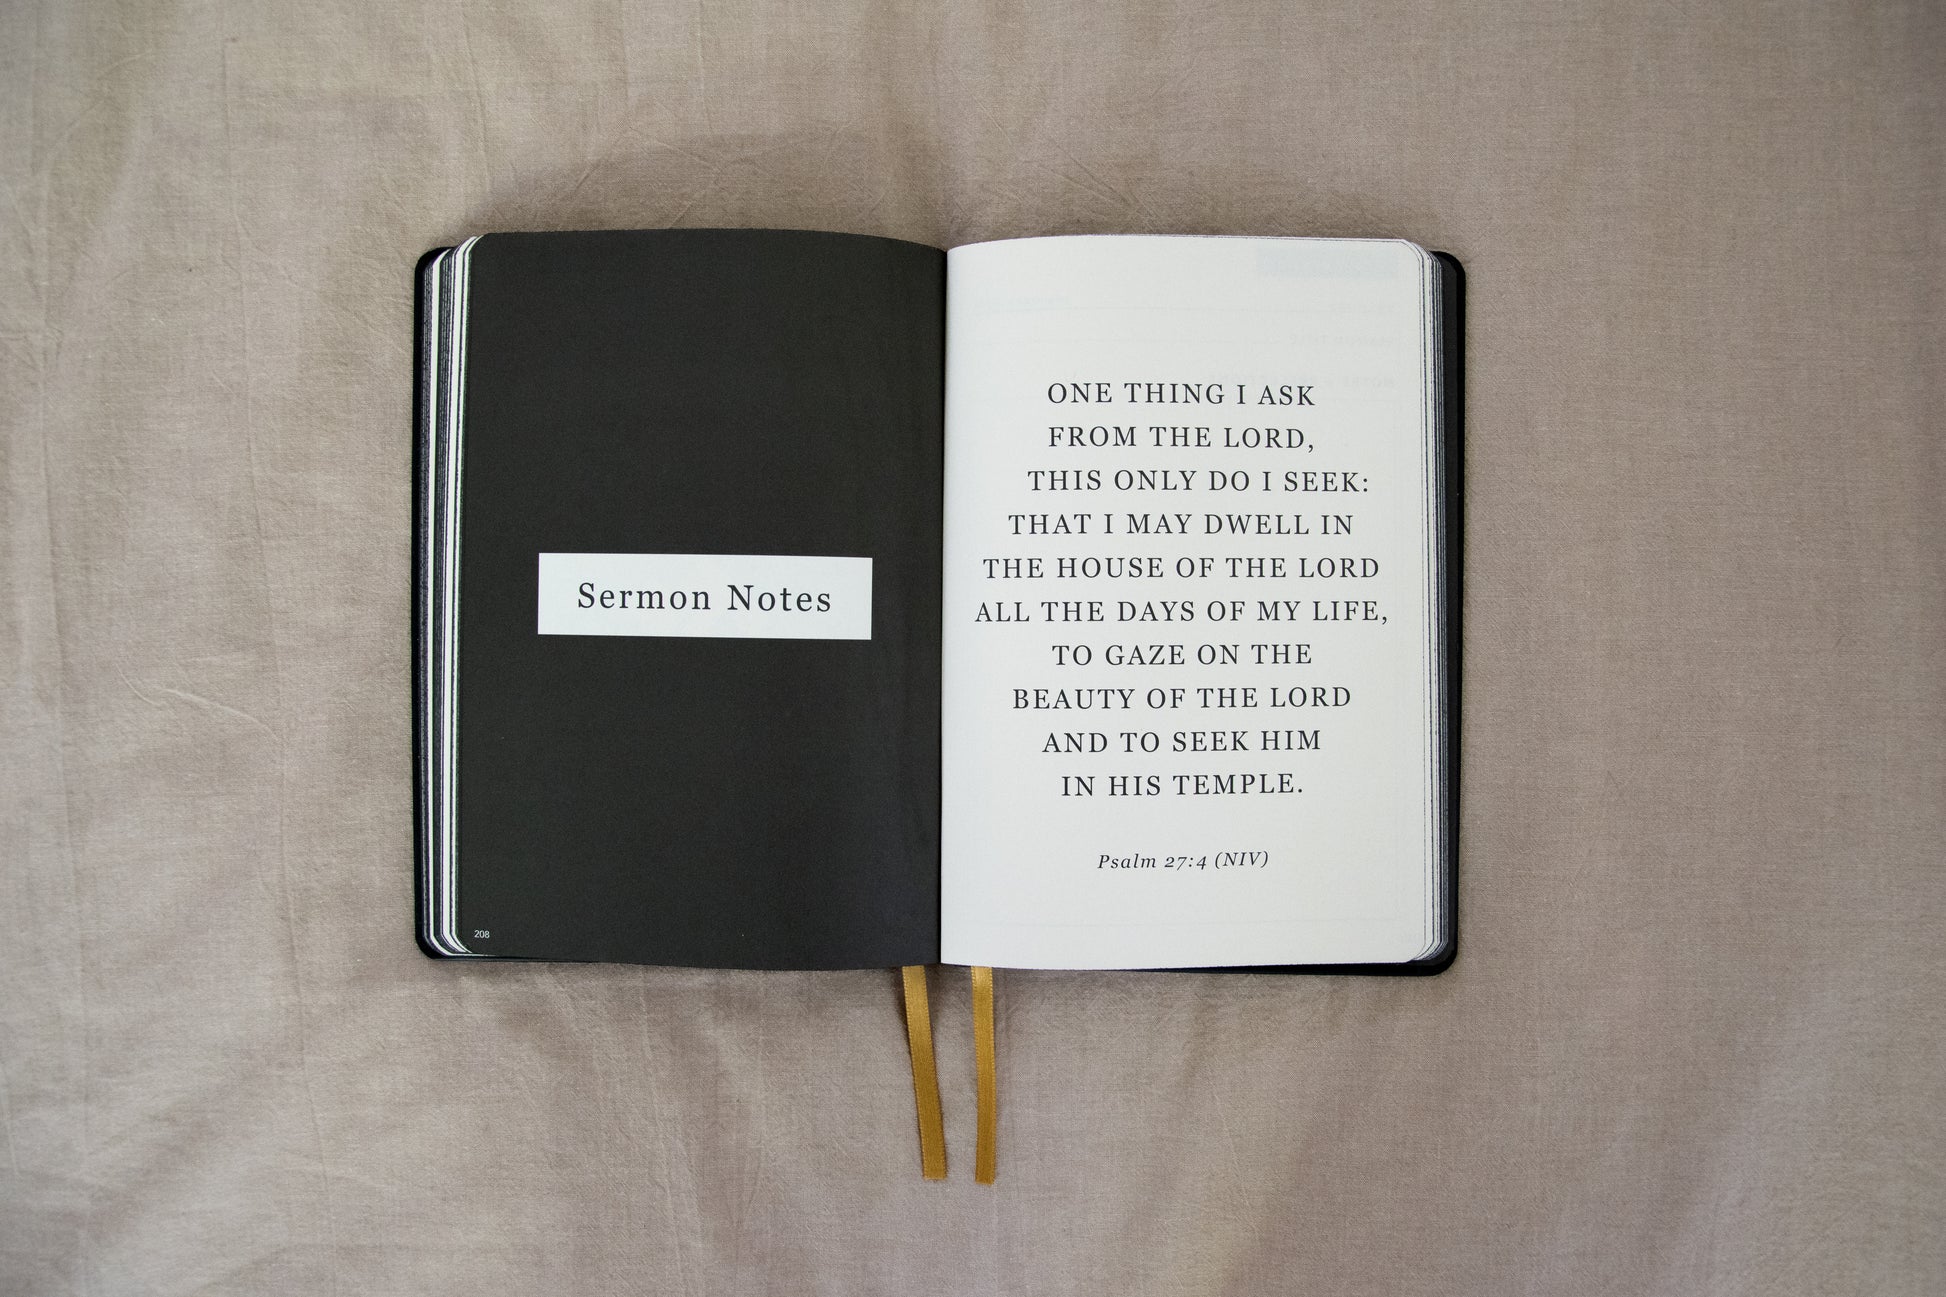 Sermon Notes
208
ONE THING I ASK
FROM THE LORD,
THIS ONLY DO I SEEK:
THAT I MAY DWELL IN
THE HOUSE OF THE LORD
ALL THE DAYS OF MY LIFE,
TO GAZE ON THE
BEAUTY OF THE LORD
AND TO SEEK HIM
IN HIS TEMPLE.
Psalm 27:4 (NIV)